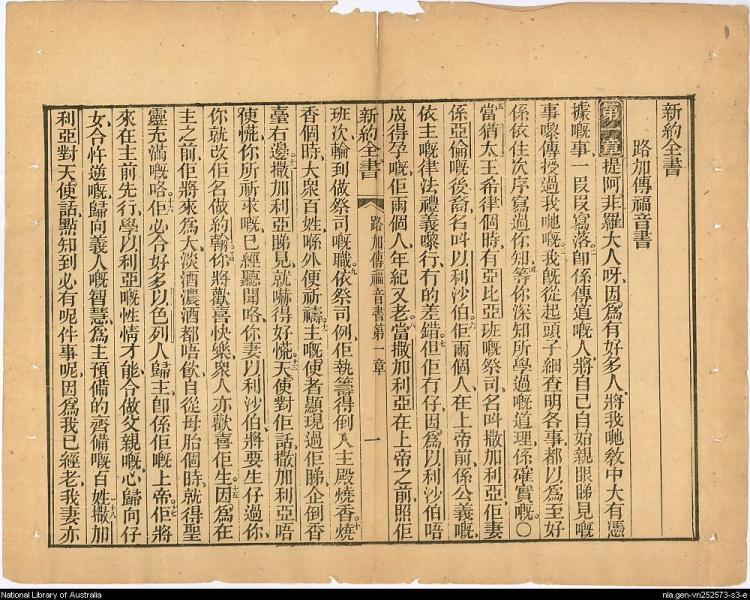 新約全書
路加傳福音書
第一章提阿非羅大人呀、因爲有好多人、將我哋教中大有憑
據嘅事、一段段寫落、卽係傳道嘅人、將自己自始親眼睇見嘅
事嚟傳授過我哋嘅、我旣從起頭子細查明各事、都以爲至好
係依住次序寫過你知、等你深知所學過嘅道理、係確實嘅。〇
當猶太王希律個時、有亞比亞班嘅祭司、名叫撒加利亞、佢妻
係亞倫嘅後裔、名叫以利沙伯、佢兩個人、在上帝前、係公義嘅、
依主嘅律法禮義嚟行、冇的差錯、但佢冇仔、因爲以利沙伯唔
成得孕嘅、佢兩個人、年紀又老。當撒加利亞在上帝之前、照佢
新約全書 路加傳福音書第一章 一
班次、輪到做祭司嘅職、依祭司例、佢執籌得倒入主殿燒香、燒
香個時、大衆百姓、喺外便祈禱、主嘅使者顯現過佢睇、企倒香
臺右邊、撒加利亞睇見、就嚇得好慌、天使對佢話、撒加利亞唔
使慌、你所祈求嘅、已經聽聞咯、你妻以利沙伯將要生仔過你、
你就改佢名做約翰、你將歡喜快樂、衆人亦歡喜佢生、因爲在
主之前、佢將來爲大、淡酒濃酒都唔飲、自從母胎個時、就得聖
靈充滿嘅咯、佢必令好多以色列人歸主、卽係佢嘅上帝、佢將
來在主前先行、學以利亞嘅性情才能、令做父親嘅、心歸向仔
女、令忤逆嘅、歸向義人嘅智慧、爲主預備的齊備嘅百姓、撒加
利亞對天使話、點知到必有呢件事呢、因爲我已經老、我妻亦
National Library of Australia
nla.gen-vn252573-s3-e